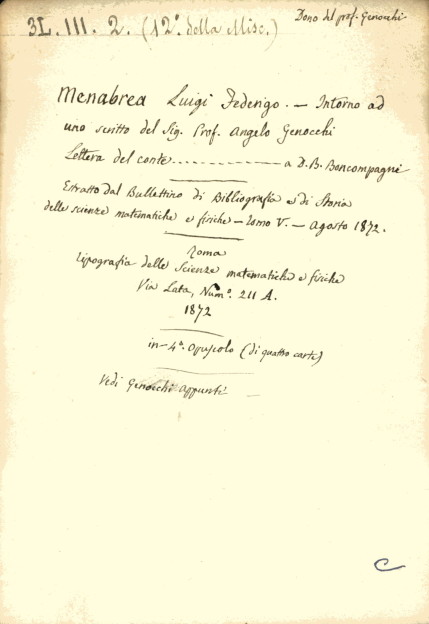 Dono del prof. Genocchi
3L. III. 2. (12° della Misc.)
Menabrea Luigi Federigo. — Intorno ad
uno scritto del Sig. Prof. Angelo Genocchi
Lettera del conte.................——— a D. B. Boncompagni
Estratto dal Bullettino di Bibliografia e di Storia
delle scienze matematiche e fisiche — Tomo V. — Agosto 1872.
Roma
Tipografia delle Scienze matematiche e fisiche
Via Lata, Num.° 211 A.
1872
in-4°. Opuscolo (di quattro carte)
Vedi Genocchi Appunti